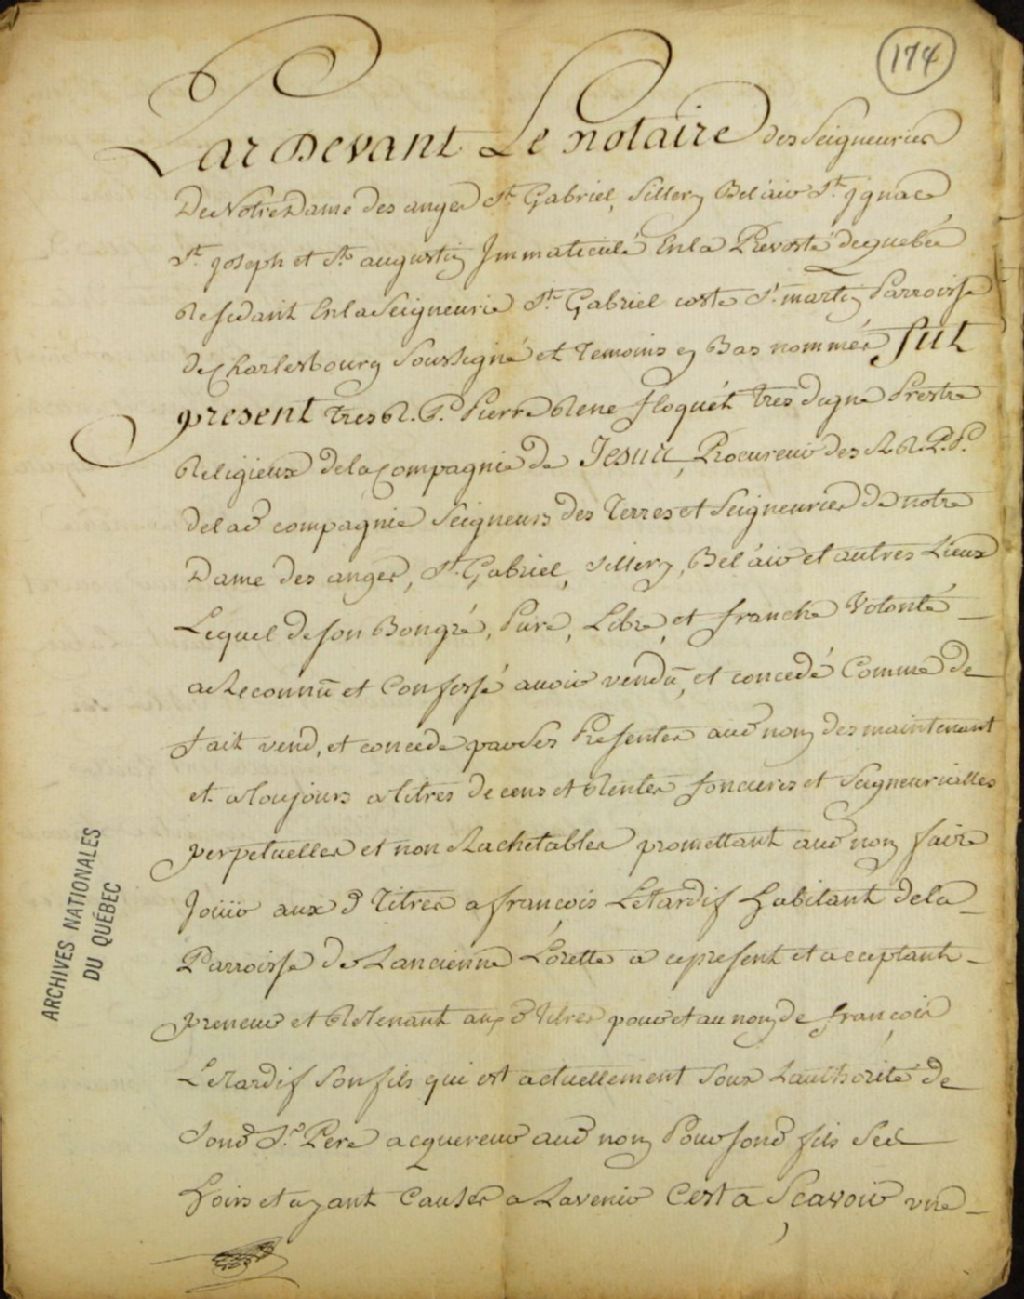 174
Par Devant Le Notaire des Seigneuries
De Notre Dame des anges St. Gabriel, Sillery Bel'air St. Ignace
St. Joseph et St. augustin Immatriculé En la Prevosté de quebec
Residant En la Seigneurie St. Gabriel coste St. martin Parroisse
de Charlesbourg Soussigné et Temoins en Bas nommés Fut
present tres R. P. Pierre Rene Floquét tres digne Prestre
Religieux de la Compagnie de Jesus, Procureur des R R. P. P.
de lad compagnie Seigneurs des Terres et Seigneuries de notre
Dame des anges, St. Gabriel, Sillery, Bel'air et autres Lieux
Lequel de son Bongré, Pure, Libre, et franche Volonté
a Reconnu et Confessé avoir vendu, et concedé Comme de
fait vend, et concede par Ses Presentes aud nom des maintenant
et a toujours a titres de cens et Rentes foncieres et Seigneurialles
perpetuelles et non Rachetables promettant aud nom faire
Joüir aux d Titres a francois Letardif habitant de la
Parroisse de Lancienne Lorette a ce present et acceptant
preneur et Retenant aux d titres pour et au nom de francois
Letardif Son fils qui est actuellement Sous Lauthorité de
Sond S. Pere acquereur aud nom Pour sond fils Ses
hoirs et ayant Causes a Lavenir Cest a Sçavoir une
ARCHIVES NATIONALES
DU QUÉBEC